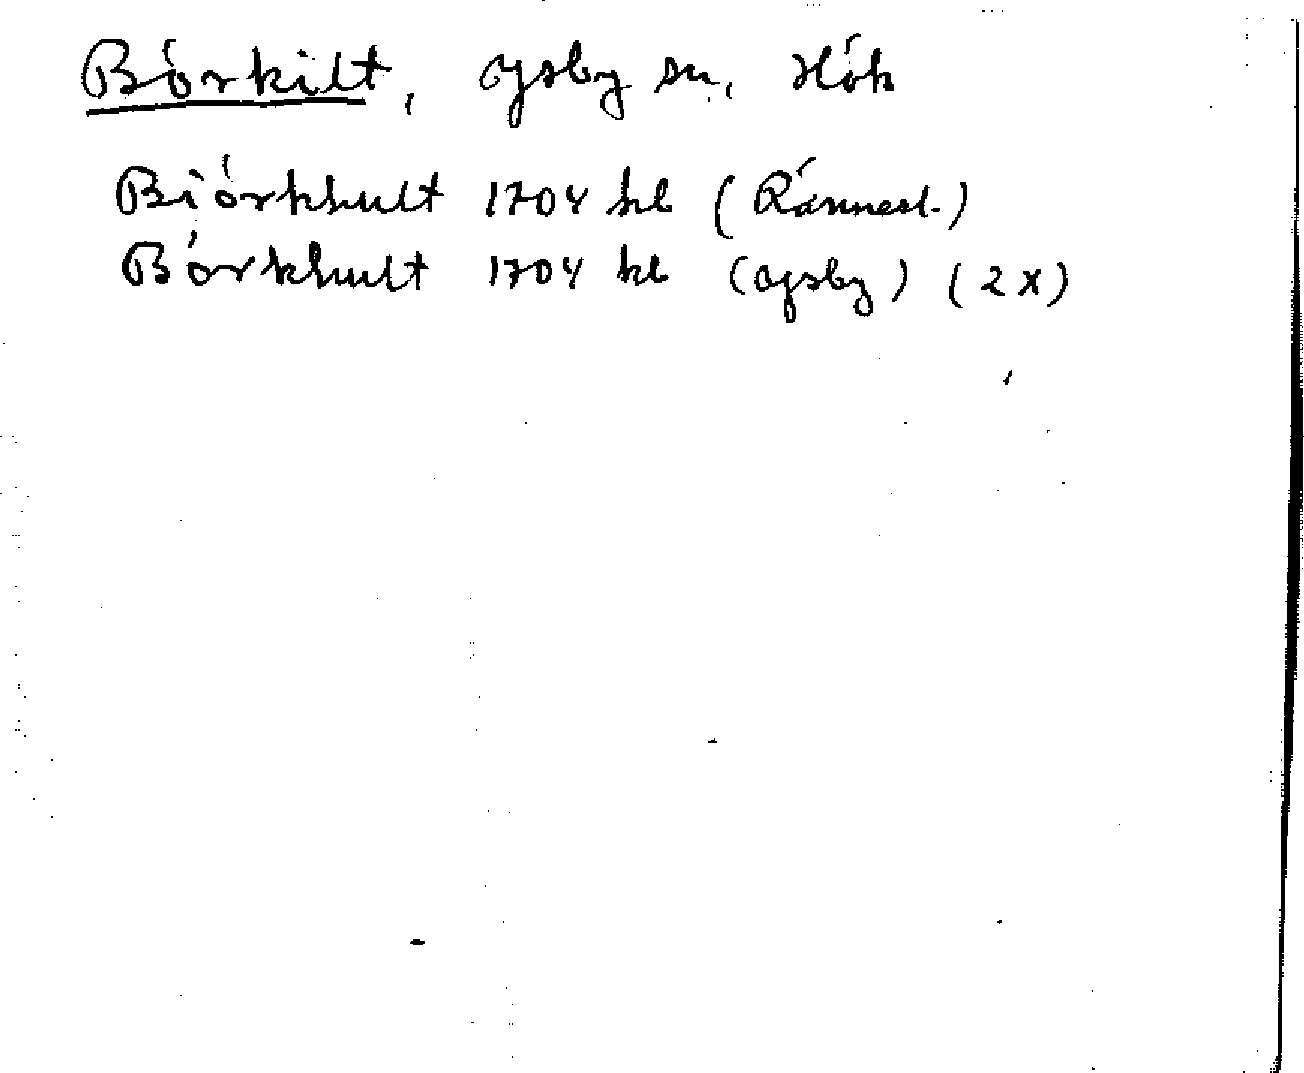 Börkilt, Ysby sn, Hök
Biörkhult 1704 kb (Rännesl.)
Börkhult 1704 kb (Ysby) (2x)